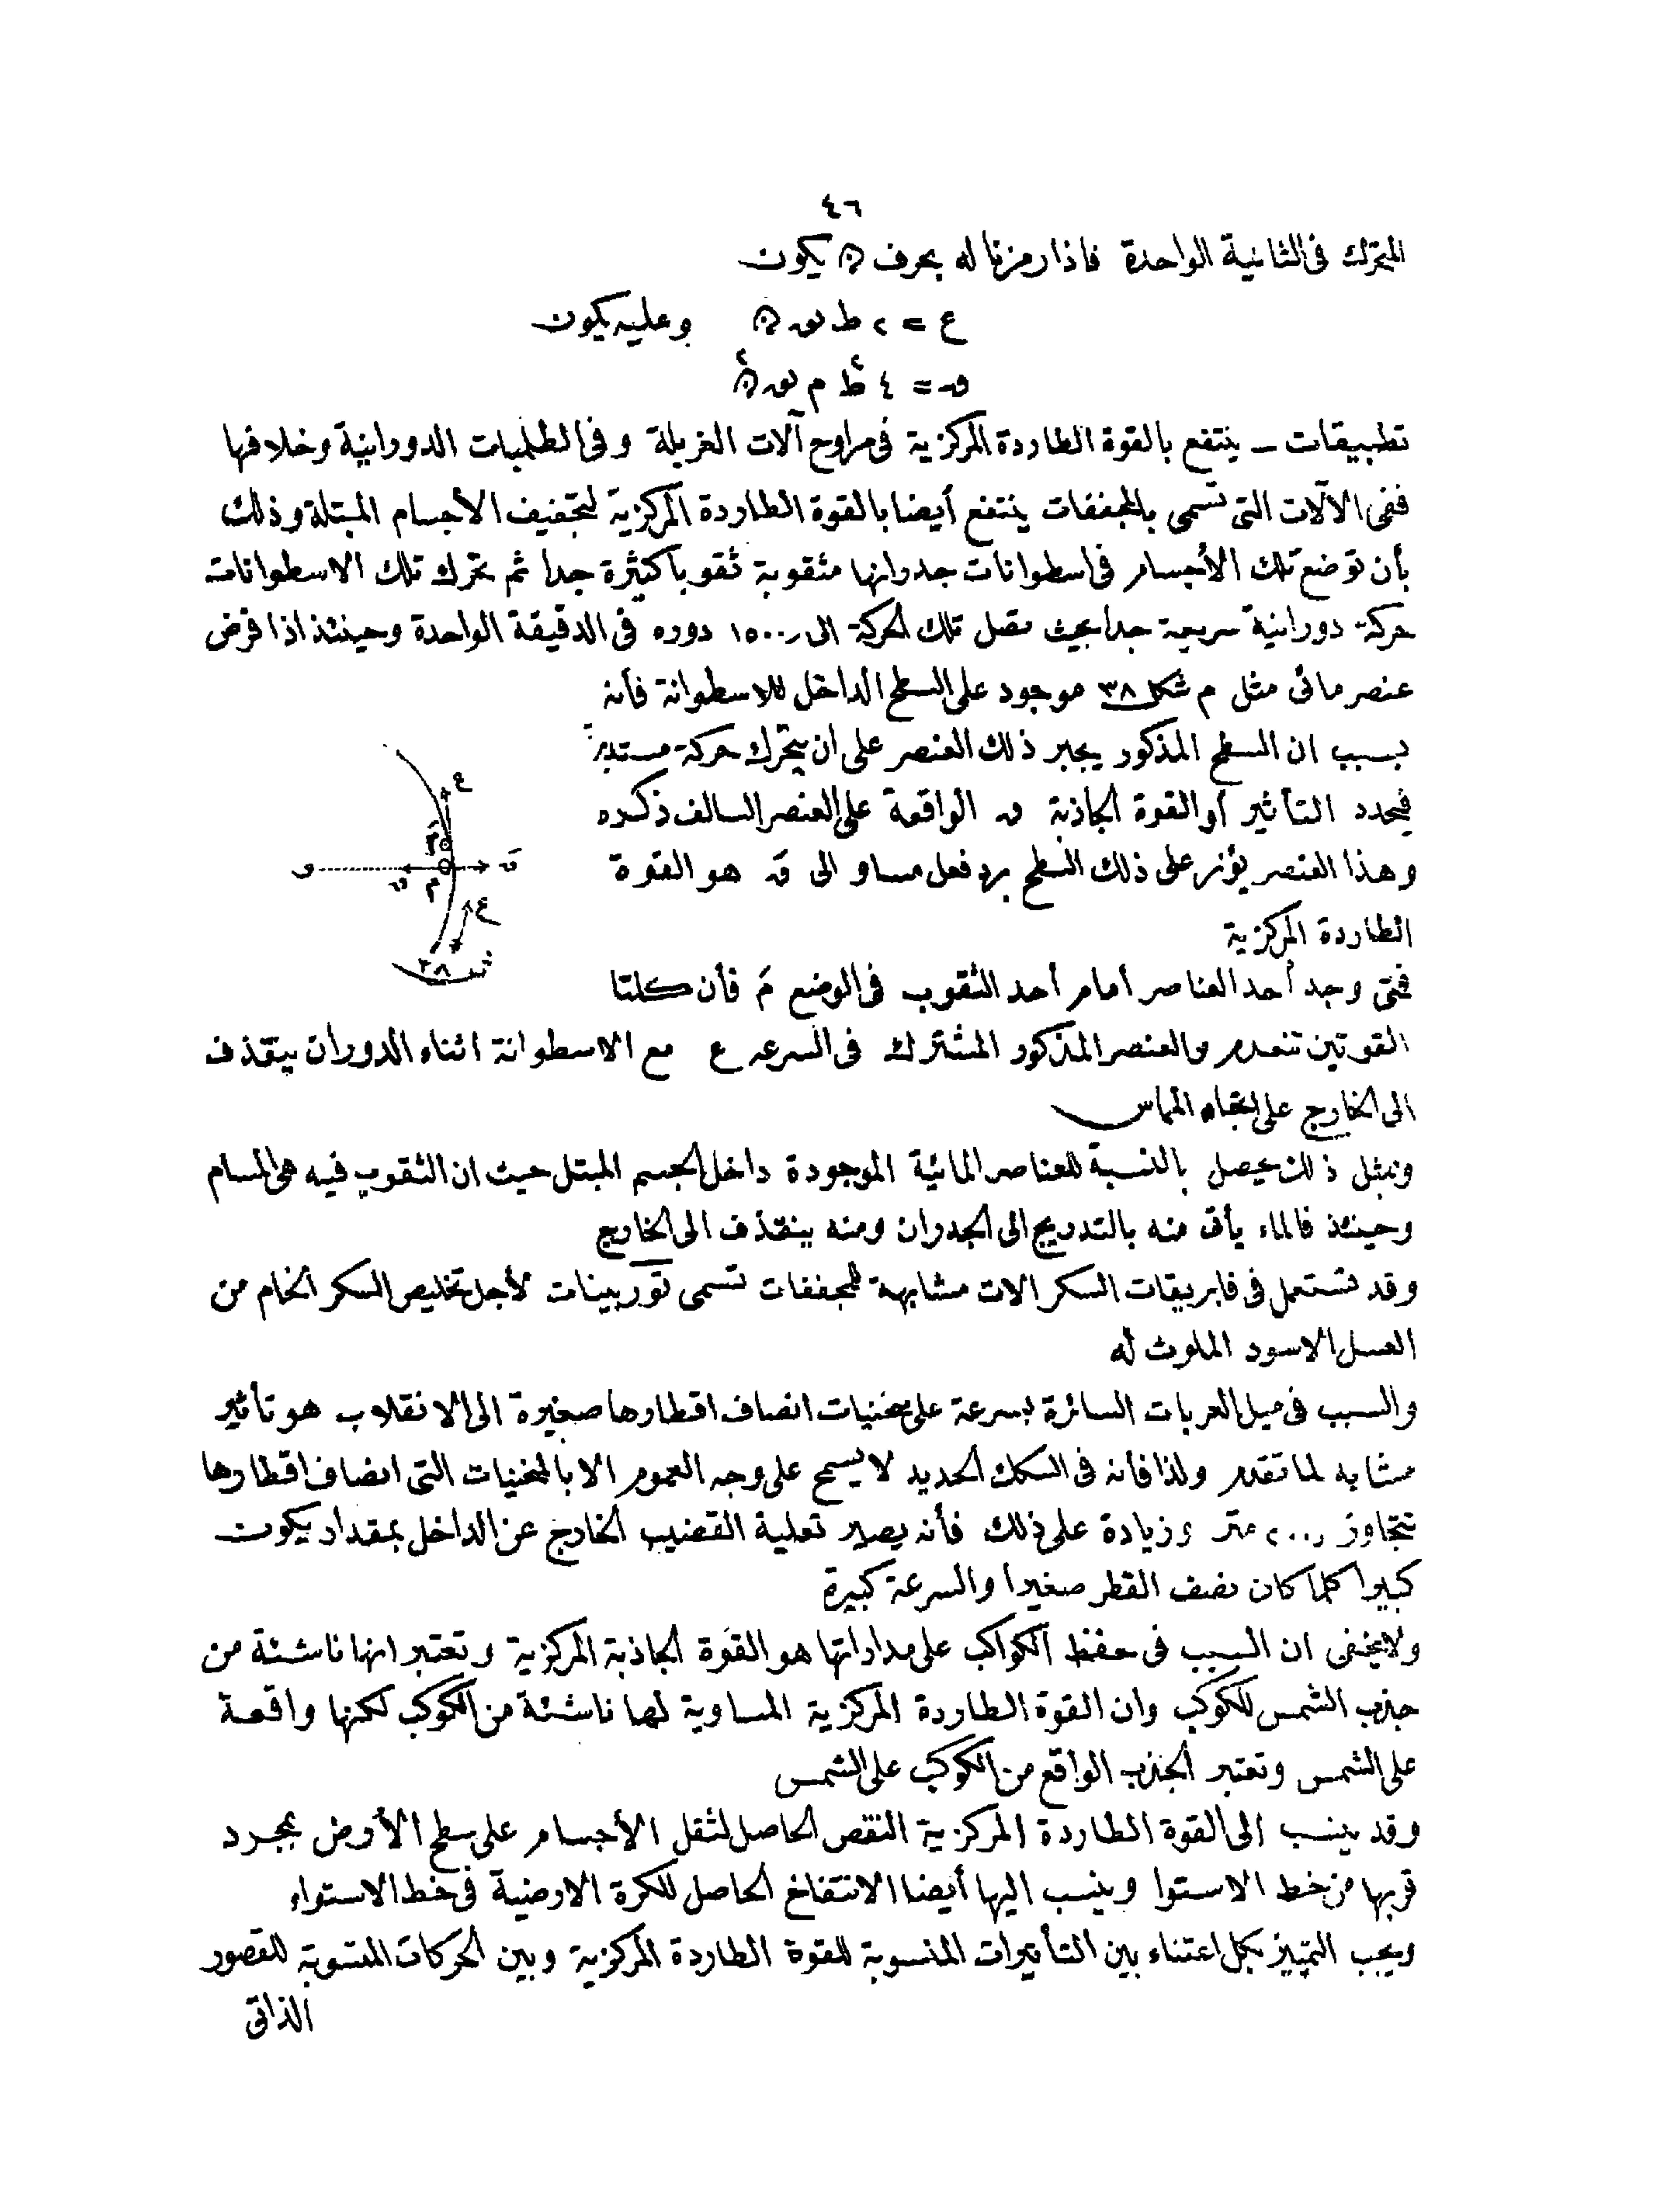 ٤٦
المتحرك فى الثانية الواحدة فاذا رمزنا له بحرف ۞ يكون
ع = ٢ ط نوه ۞ وعليه يكون
ق = ٤ ط٢ م نوه ۞٢
تطبيقات ـ ينتفع بالقوة الطاردة المركزية فى مراوح آلات الغربلة وفى الطلمبات الدورانية وخلافها
ففى الآلات التى تسمى بالمجففات ينتفع أيضا بالقوة الطاردة المركزية لتجفيف الأجسام المبتلة وذلك
بأن توضع تلك الأجسام فى اسطوانات جدرانها مثقوبة ثقوبا كثيرة جدا ثم تحرك تلك الاسطوانات
حركة دورانية سريعة جدا بحيث تصل تلك الحركة الى ١٥٠٠ دوره فى الدقيقة الواحدة وحينئذ اذا فرض
عنصر مائى مثل م شكل ٣٨ موجود على السطح الداخل للاسطوانة فأنه
بسبب ان السطح المذكور يجبر ذلك العنصر على ان يتحرك حركة مستديرة
فيحدد التأثير أو القوة الجاذبة ق الواقعة على العنصر السالف ذكره
وهذا العنصر يؤثر على ذلك السطح برد فعل مساو الى قَ هو القوة
الطاردة المركزية
فمتى وجد أحد العناصر أمام أحد الثقوب فى الوضع مَ فأن كلتا
القوتين تنعدم والعنصر المذكور المشترك فى السرعه ع مع الاسطوانة اثناء الدوران ينقذف
الى الخارج على اتجاه المماس
ع
مَ
و ق م قَ
ع
ش ٣٨
وبمثل ذلك يحصل بالنسبة للعناصر المائية الموجودة داخل الجسم المبتل حيث ان الثقوب فيه هى المسام
وحينئذ فالماء يأتى منه بالتدريج الى الجدران ومنه ينقذف الى الخارج
وقد تستعمل فى فابريقات السكر الات مشابهة للمجففات تسمى توربينات لأجل تخليص السكر الخام من
العسل الاسود الملوث له
والسبب فى ميل العربات السائرة بسرعة على منحنيات انصاف اقطارها صغيرة الى الانقلاب هو تأثير
مشابه لما تقدم ولذا فأنه فى السكك الحديد لا يسمح على وجه العموم الا بالمنحنيات التى انصاف اقطارها
تتجاوز ٢٠٠ متر وزيادة على ذلك فأنه يصير تعلية القضيب الخارج عن الداخل بمقدار يكون
كبيرا كلما كان نصف القطر صغيرا والسرعة كبيرة
ولا يخفى ان السبب فى حفظ الكواكب على مداراتها هو القوة الجاذبة المركزية وتعتبر انها ناشئة من
جذب الشمس للكوكب وان القوة الطاردة المركزية المساوية لها ناشئة من الكوكب لكنها واقعة
على الشمس وتعتبر الجذب الواقع من الكوكب على الشمس
وقد ينسب الى القوة الطاردة المركزية النقص الحاصل لثقل الأجسام على سطح الأرض بمجرد
قربها من خط الاستوا وينسب اليها أيضا الانتفاخ الحاصل للكرة الارضية فى خط الاستواء
ويجب التمييز بكل اعتناء بين التأثيرات المنسوبة للقوة الطاردة المركزية وبين الحركات المنسوبة للقصور
الذاتى